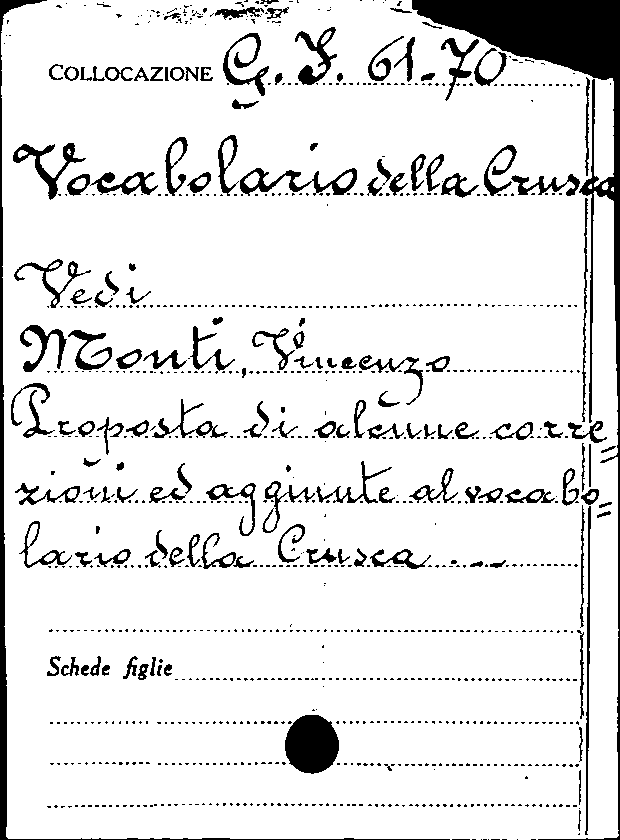 COLLOCAZIONE G. F. 61-70
Vocabolario della Crusca
Vedi
Monti, Vincenzo
Proposta di alcune corre=
zioni ed aggiunte al vocabo=
lario della Crusca . _ _
Schede figlie